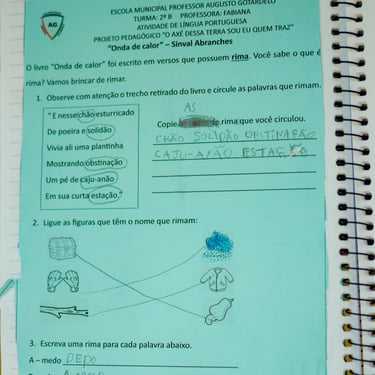 ESCOLA MUNICIPAL PROFESSOR AUGUSTO GOTARDELO
TURMA: 2º B PROFESSORA: FABIANA
ATIVIDADE DE LÍNGUA PORTUGUESA
PROJETO PEDAGÓGICO "O AXÉ DESSA TERRA SOU EU QUEM TRAZ"
"Onda de calor" – Sinval Abranches
AG
O livro "Onda de calor" foi escrito em versos que possuem rima. Você sabe o que é
rima? Vamos brincar de rimar.
1. Observe com atenção o trecho retirado do livro e circule as palavras que rimam.
"E nesse chão esturricado
De poeira e solidão
Vivia ali uma plantinha
Mostrando obstinação
Um pé de caju-anão
Em sua curta estação."
AS
Copie de rima que você circulou.
CHÃO SOLIDÃO OBSTINAÇÃO
CAJU-ANÃO ESTAÇÃO
2. Ligue as figuras que têm o nome que rimam:
3. Escreva uma rima para cada palavra abaixo.
A – medo DEDO